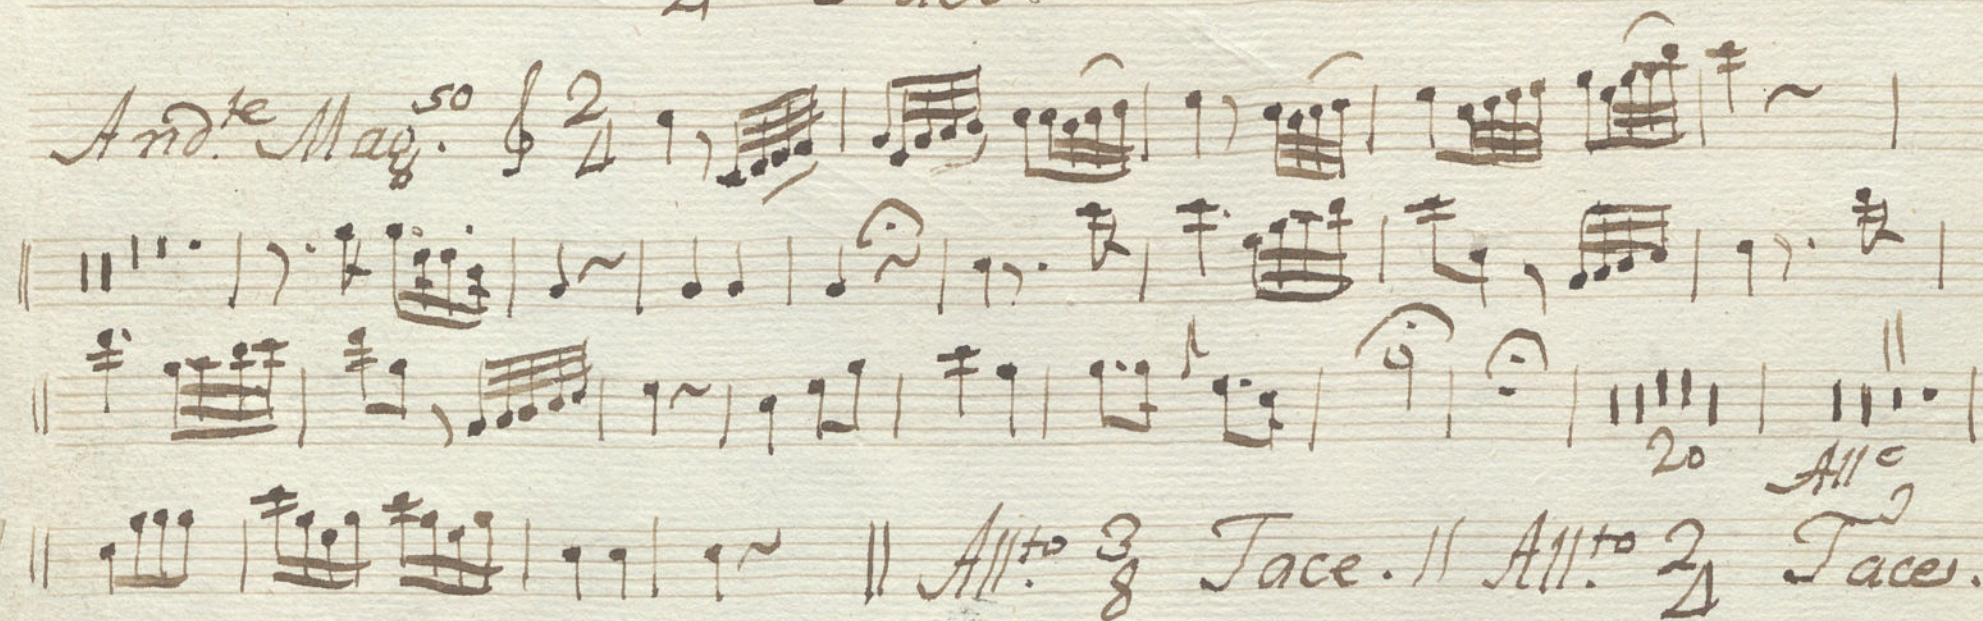 And.te Mag.so 2 4
20 All.o
All.to 3 8 Tace. || All.to 2 4 Taces.